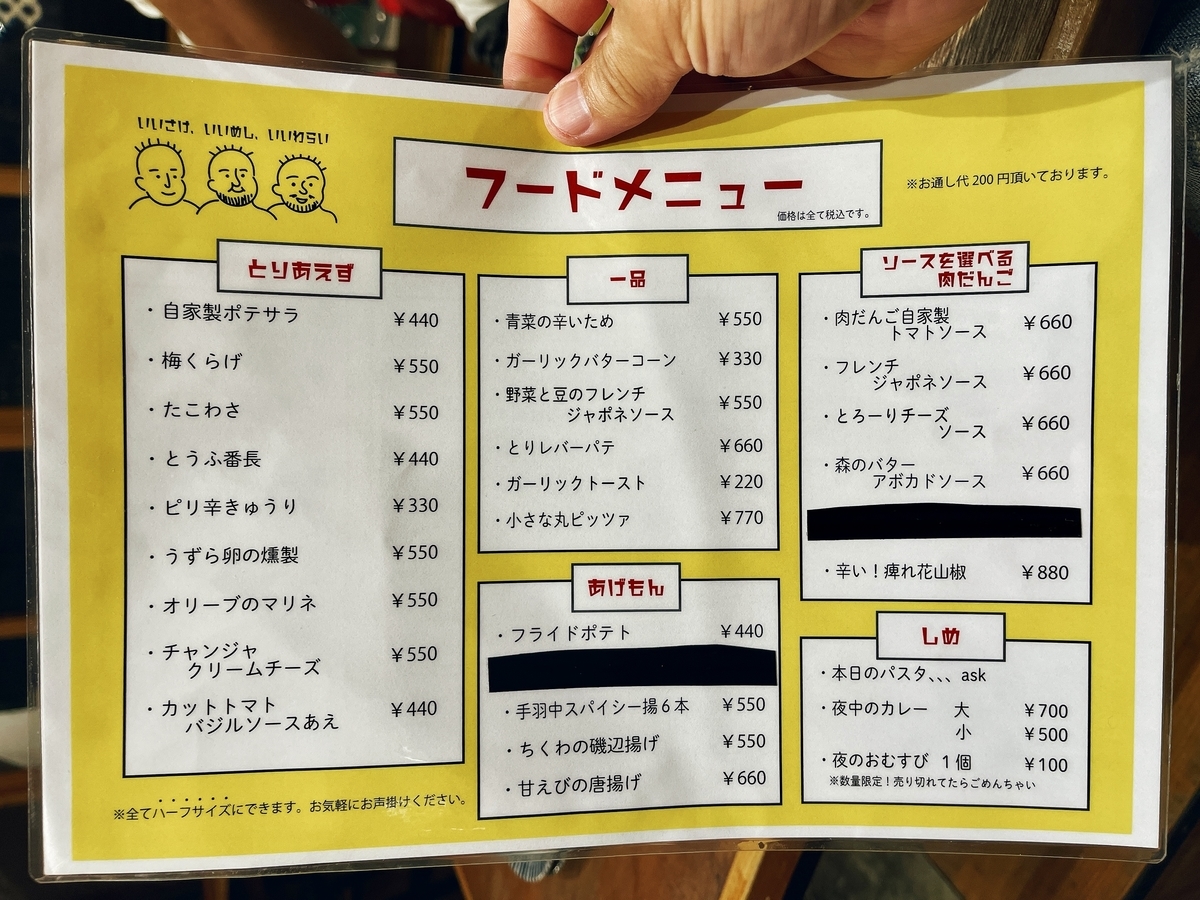 いいさけ、いいめし、いいわらい
フードメニュー
価格は全て税込です。
※お通し代200円頂いております。
とりあえず
・自家製ポテサラ ¥440
・梅くらげ ¥550
・たこわさ ¥550
・とうふ番長 ¥440
・ピリ辛きゅうり ¥330
・うずら卵の燻製 ¥550
・オリーブのマリネ ¥550
・チャンジャ
クリームチーズ ¥550
・カットトマト
バジルソースあえ ¥440
※全てハーフサイズにできます。お気軽にお声掛けください。
一品
・青菜の辛いため ¥550
・ガーリックバターコーン ¥330
・野菜と豆のフレンチ
ジャポネソース ¥550
・とりレバーパテ ¥660
・ガーリックトースト ¥220
・小さな丸ピッツァ ¥770
あげもん
・フライドポテト ¥440
・手羽中スパイシー揚6本 ¥550
・ちくわの磯辺揚げ ¥550
・甘えびの唐揚げ ¥660
ソースを選べる
肉だんご
・肉だんご自家製
トマトソース ¥660
・フレンチ
ジャポネソース ¥660
・とろーりチーズ
ソース ¥660
・森のバター
アボカドソース ¥660
・辛い!痺れ花山椒 ¥880
しめ
・本日のパスタ、、、ask
・夜中のカレー 大 ¥700
小 ¥500
・夜のおむすび 1個 ¥100
※数量限定!売り切れてたらごめんちゃい